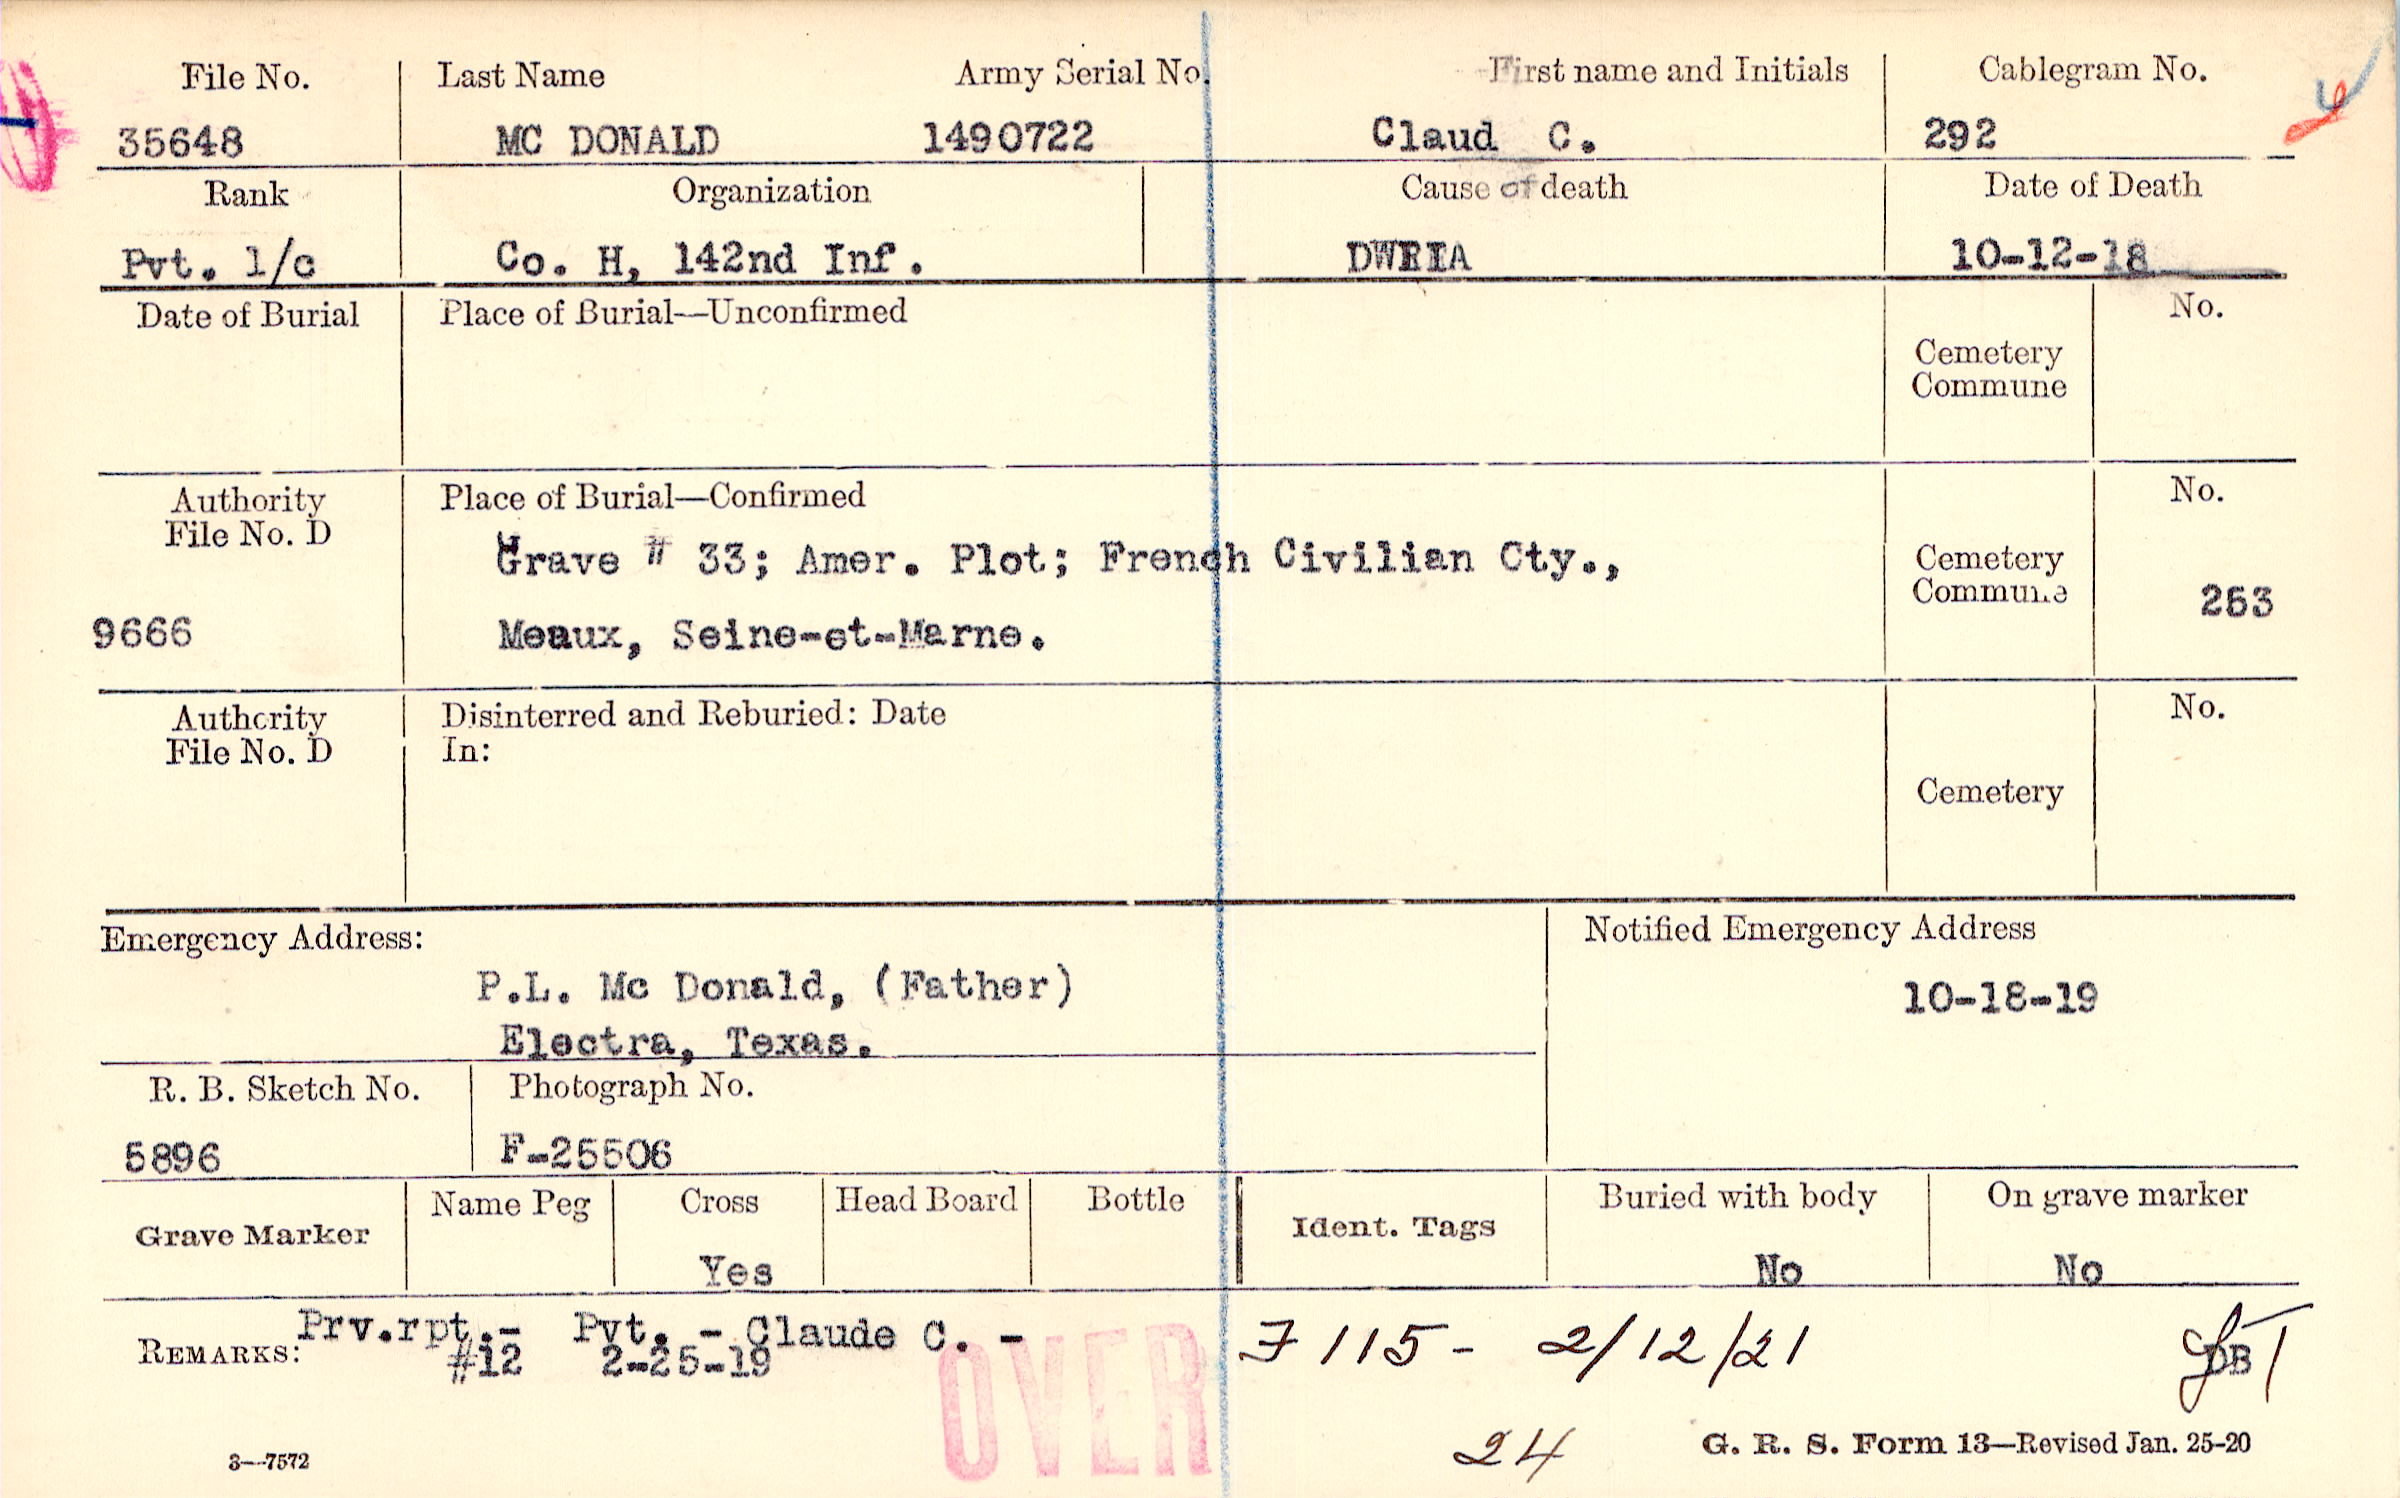 File No. Last Name Army Serial No. First name and Initials Cablegram No.
35648 MC DONALD 1490722 Claud C. 292
Rank Organization Cause of death Date of Death
Pvt. 1/c Co. H, 142nd Inf. DWRIA 10-12-18
Date of Burial Place of Burial—Unconfirmed No.
Cemetery
Commune
Authority Place of Burial—Confirmed No.
File No. D
Grave # 33; Amer. Plot; French Civilian Cty., Cemetery
Commune 253
9666 Meaux, Seine-et-Marne.
Authority Disinterred and Reburied: Date No.
File No. D In:
Cemetery
Emergency Address: Notified Emergency Address
P.L. Mc Donald, (Father) 10-18-19
Electra, Texas.
R. B. Sketch No. Photograph No.
5896 F-25506
Grave Marker Name Peg Cross Head Board Bottle Ident. Tags Buried with body On grave marker
Yes No No
REMARKS: Prv.rpt.- Pvt. - Claude C. - F 115 - 2/12/21
#12 2-25-19 DB
OVER
24
3—7572 G. R. S. Form 13—Revised Jan. 25-20